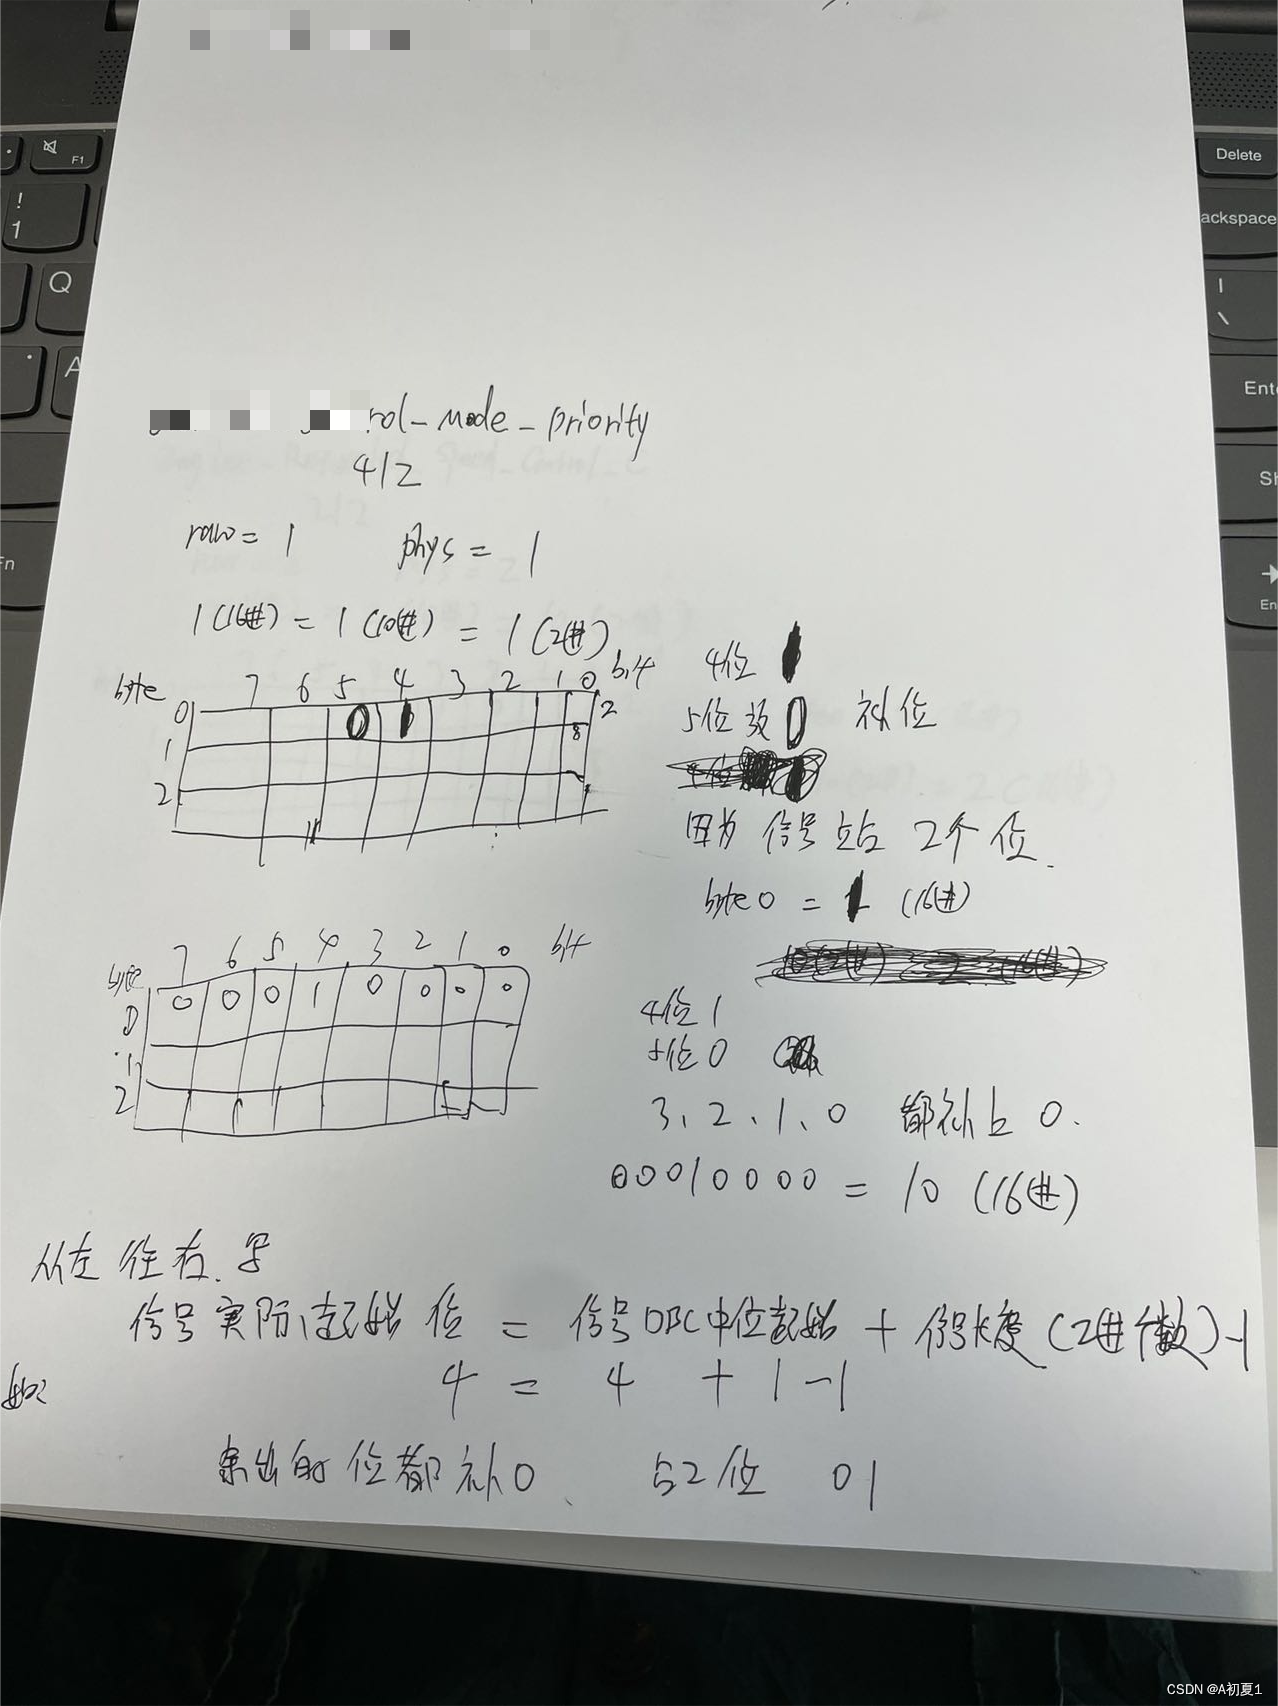 rol-mode-priority
4|2
raw = 1 phys = 1
1 (16进) = 1 (10进) = 1 (2进)
byte 7 6 5 4 3 2 1 0 bit
0 0 1 2
1 8
2
4位 1
5位 放 0 补位
因为 信号 占 2个 位.
byte 0 = 1 (16进)
byte 7 6 5 4 3 2 1 0 bit
0 0 0 0 1 0 0 0 0
1
2
4位 1
5位 0
3、2、1、0 都补上 0.
00010000 = 10 (16进)
从左往右.写
信号实际起始位 = 信号DBC中位起始 + 信号长度(2进个数)-1
如: 4 = 4 + 1 - 1
的位都补0、 占2位 01
F1
!
1
Q
A
Delete
ackspace
|
\
Ent
Sh
En
CSDN @A初夏1